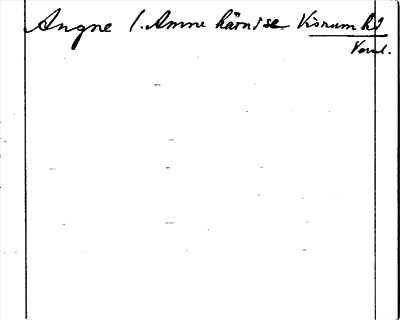 Angne l. Amne härnise Visnum hd
Verml.